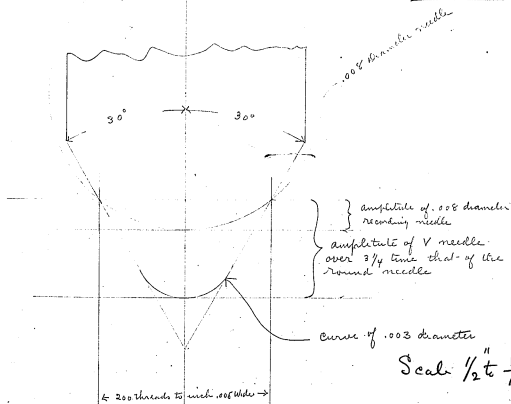 .008 diameter needle
30°
30°
amplitude of .008 diameter
recording needle
amplitude of V needle
over 3¼ time that of the
round needle
curve of .003 diameter
Scale ½" to
200 threads to inch .006 wide